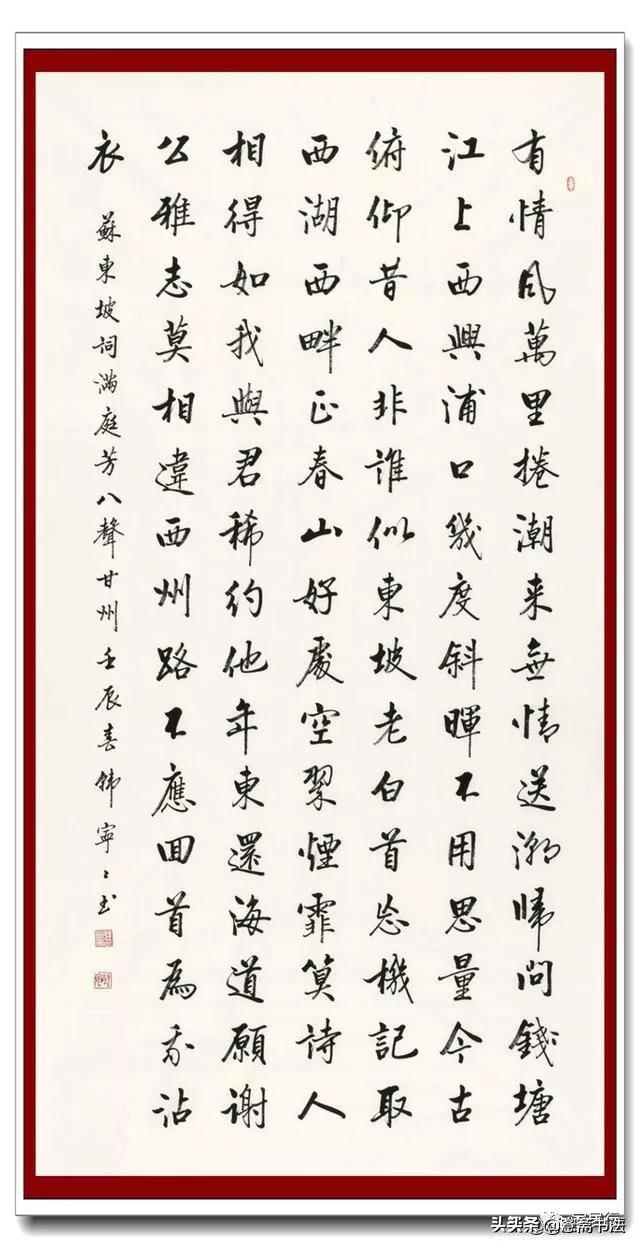 有情风萬里捲潮来無情送潮歸問錢塘
江上西興浦口幾度斜暉不用思量今古
俯仰昔人非誰似東坡老白首忘機記取
西湖西畔正春山好處空翠煙霏算詩人
相得如我與君稀約他年東還海道願謝
公雅志莫相違西州路不應回首為我沾
衣
蘇東坡詞滿庭芳八聲甘州壬辰春韩寧〻书
头条